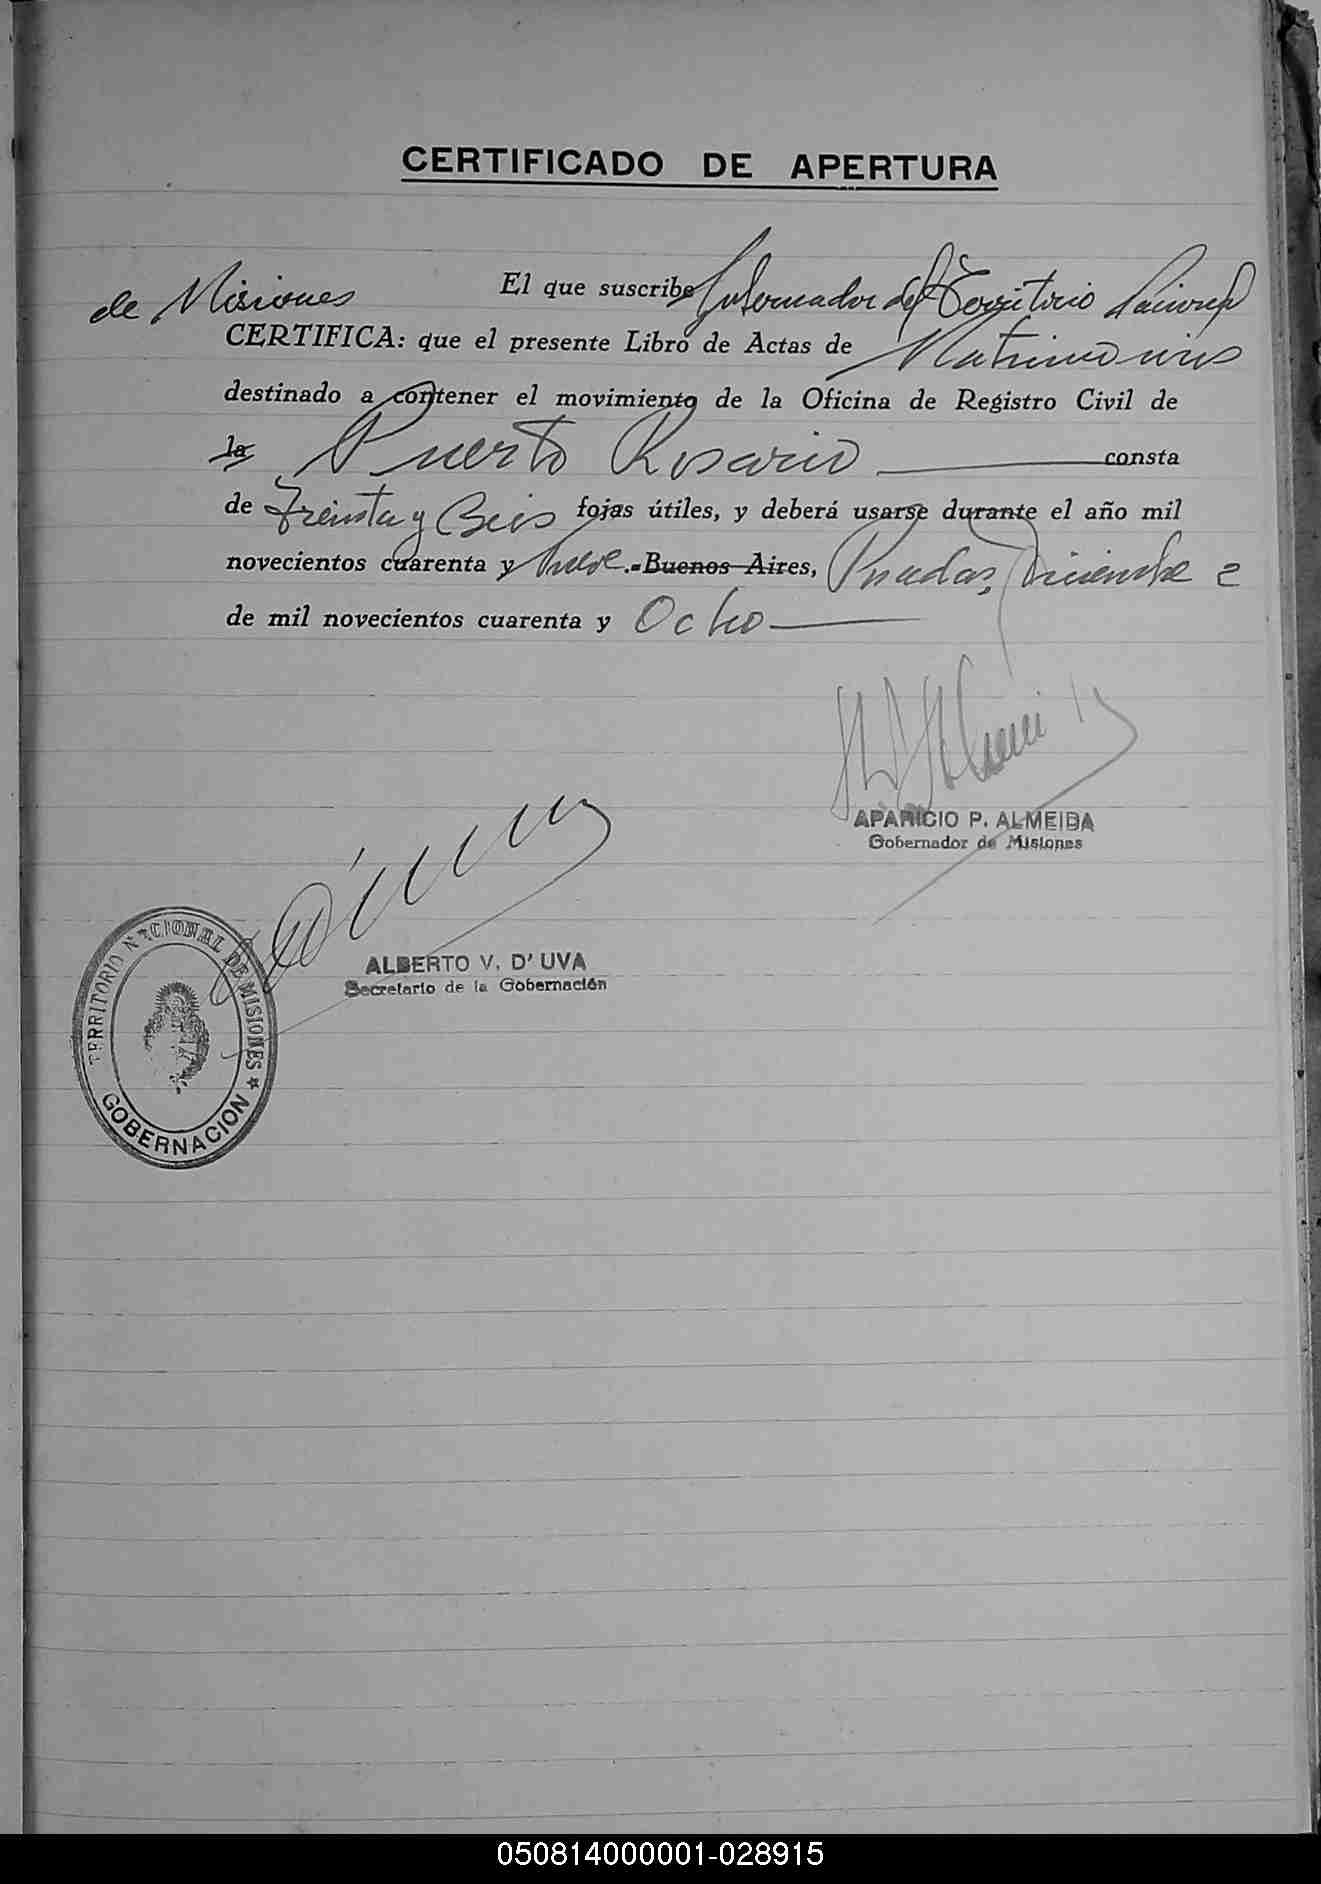 CERTIFICADO DE APERTURA
El que suscribe Gobernador del Territorio Nacional
de Misiones
CERTIFICA: que el presente Libro de Actas de Matrimonios
destinado a contener el movimiento de la Oficina de Registro Civil de
la Puerto Rosario consta
de Treinta y Seis fojas útiles, y deberá usarse durante el año mil
novecientos cuarenta y nueve.-Buenos Aires, Posadas, Diciembre 2
de mil novecientos cuarenta y Ocho
APARICIO P. ALMEIDA
Gobernador de Misiones
ALBERTO V. D' UVA
Secretario de la Gobernación
TERRITORIO NACIONAL DE MISIONES ★
GOBERNACION
050814000001-028915